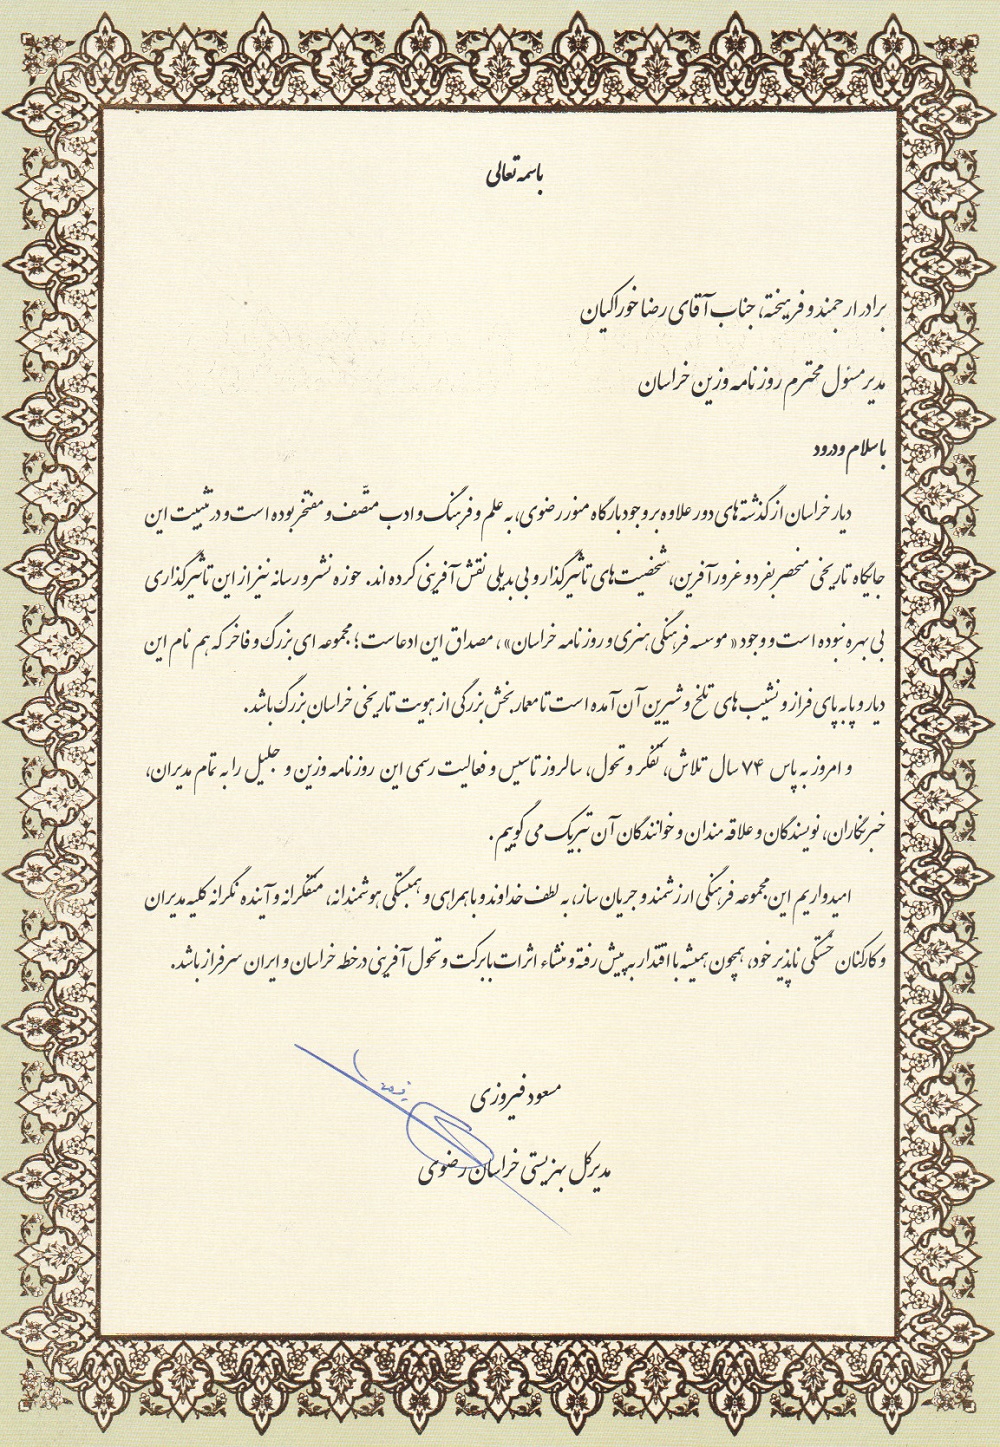 باسمه تعالی
برادر ارجمند و فرهیخته، جناب آقای رضا خوراکیان
مدیر مسئول محترم روزنامه وزین خراسان
با سلام و درود
دیار خراسان از گذشته‌های دور علاوه بر وجود بارگاه منور رضوی، به علم و فرهنگ و ادب متّصف و مفتخر بوده است و در تثبیت این
جایگاه تاریخی منحصر بفرد و غرور آفرین، شخصیت‌های تاثیرگذار و بی بدیلی نقش آفرینی کرده اند. حوزه نشر و رسانه نیز از این تاثیرگذاری
بی بهره نبوده است و وجود «موسسه فرهنگی هنری و روزنامه خراسان»، مصداق این ادعاست؛ مجموعه ای بزرگ و فاخر که هم نام این
دیار و پابه پای فراز و نشیب های تلخ و شیرین آن آمده است تا معمار بخش بزرگی از هویت تاریخی خراسان بزرگ باشد.
و امروز به پاس ۷۴ سال تلاش، تفکر و تحول، سالروز تاسیس و فعالیت رسمی این روزنامه وزین و جلیل را به تمام مدیران،
خبرنگاران، نویسندگان و علاقه مندان و خوانندگان آن تبریک می گوییم.
امیدواریم این مجموعه فرهنگی ارزشمند و جریان ساز، به لطف خداوند و با همراهی و همبستگی هوشمندانه، متفکرانه و آینده نگرانه کلیه مدیران
و کارکنان خستگی ناپذیر خود، همچون همیشه با اقتدار به پیش رفته و منشاء اثرات با برکت و تحول آفرینی در خطه خراسان و ایران سرفراز باشد.
مسعود فیروزی
مدیرکل بهزیستی خراسان رضوی